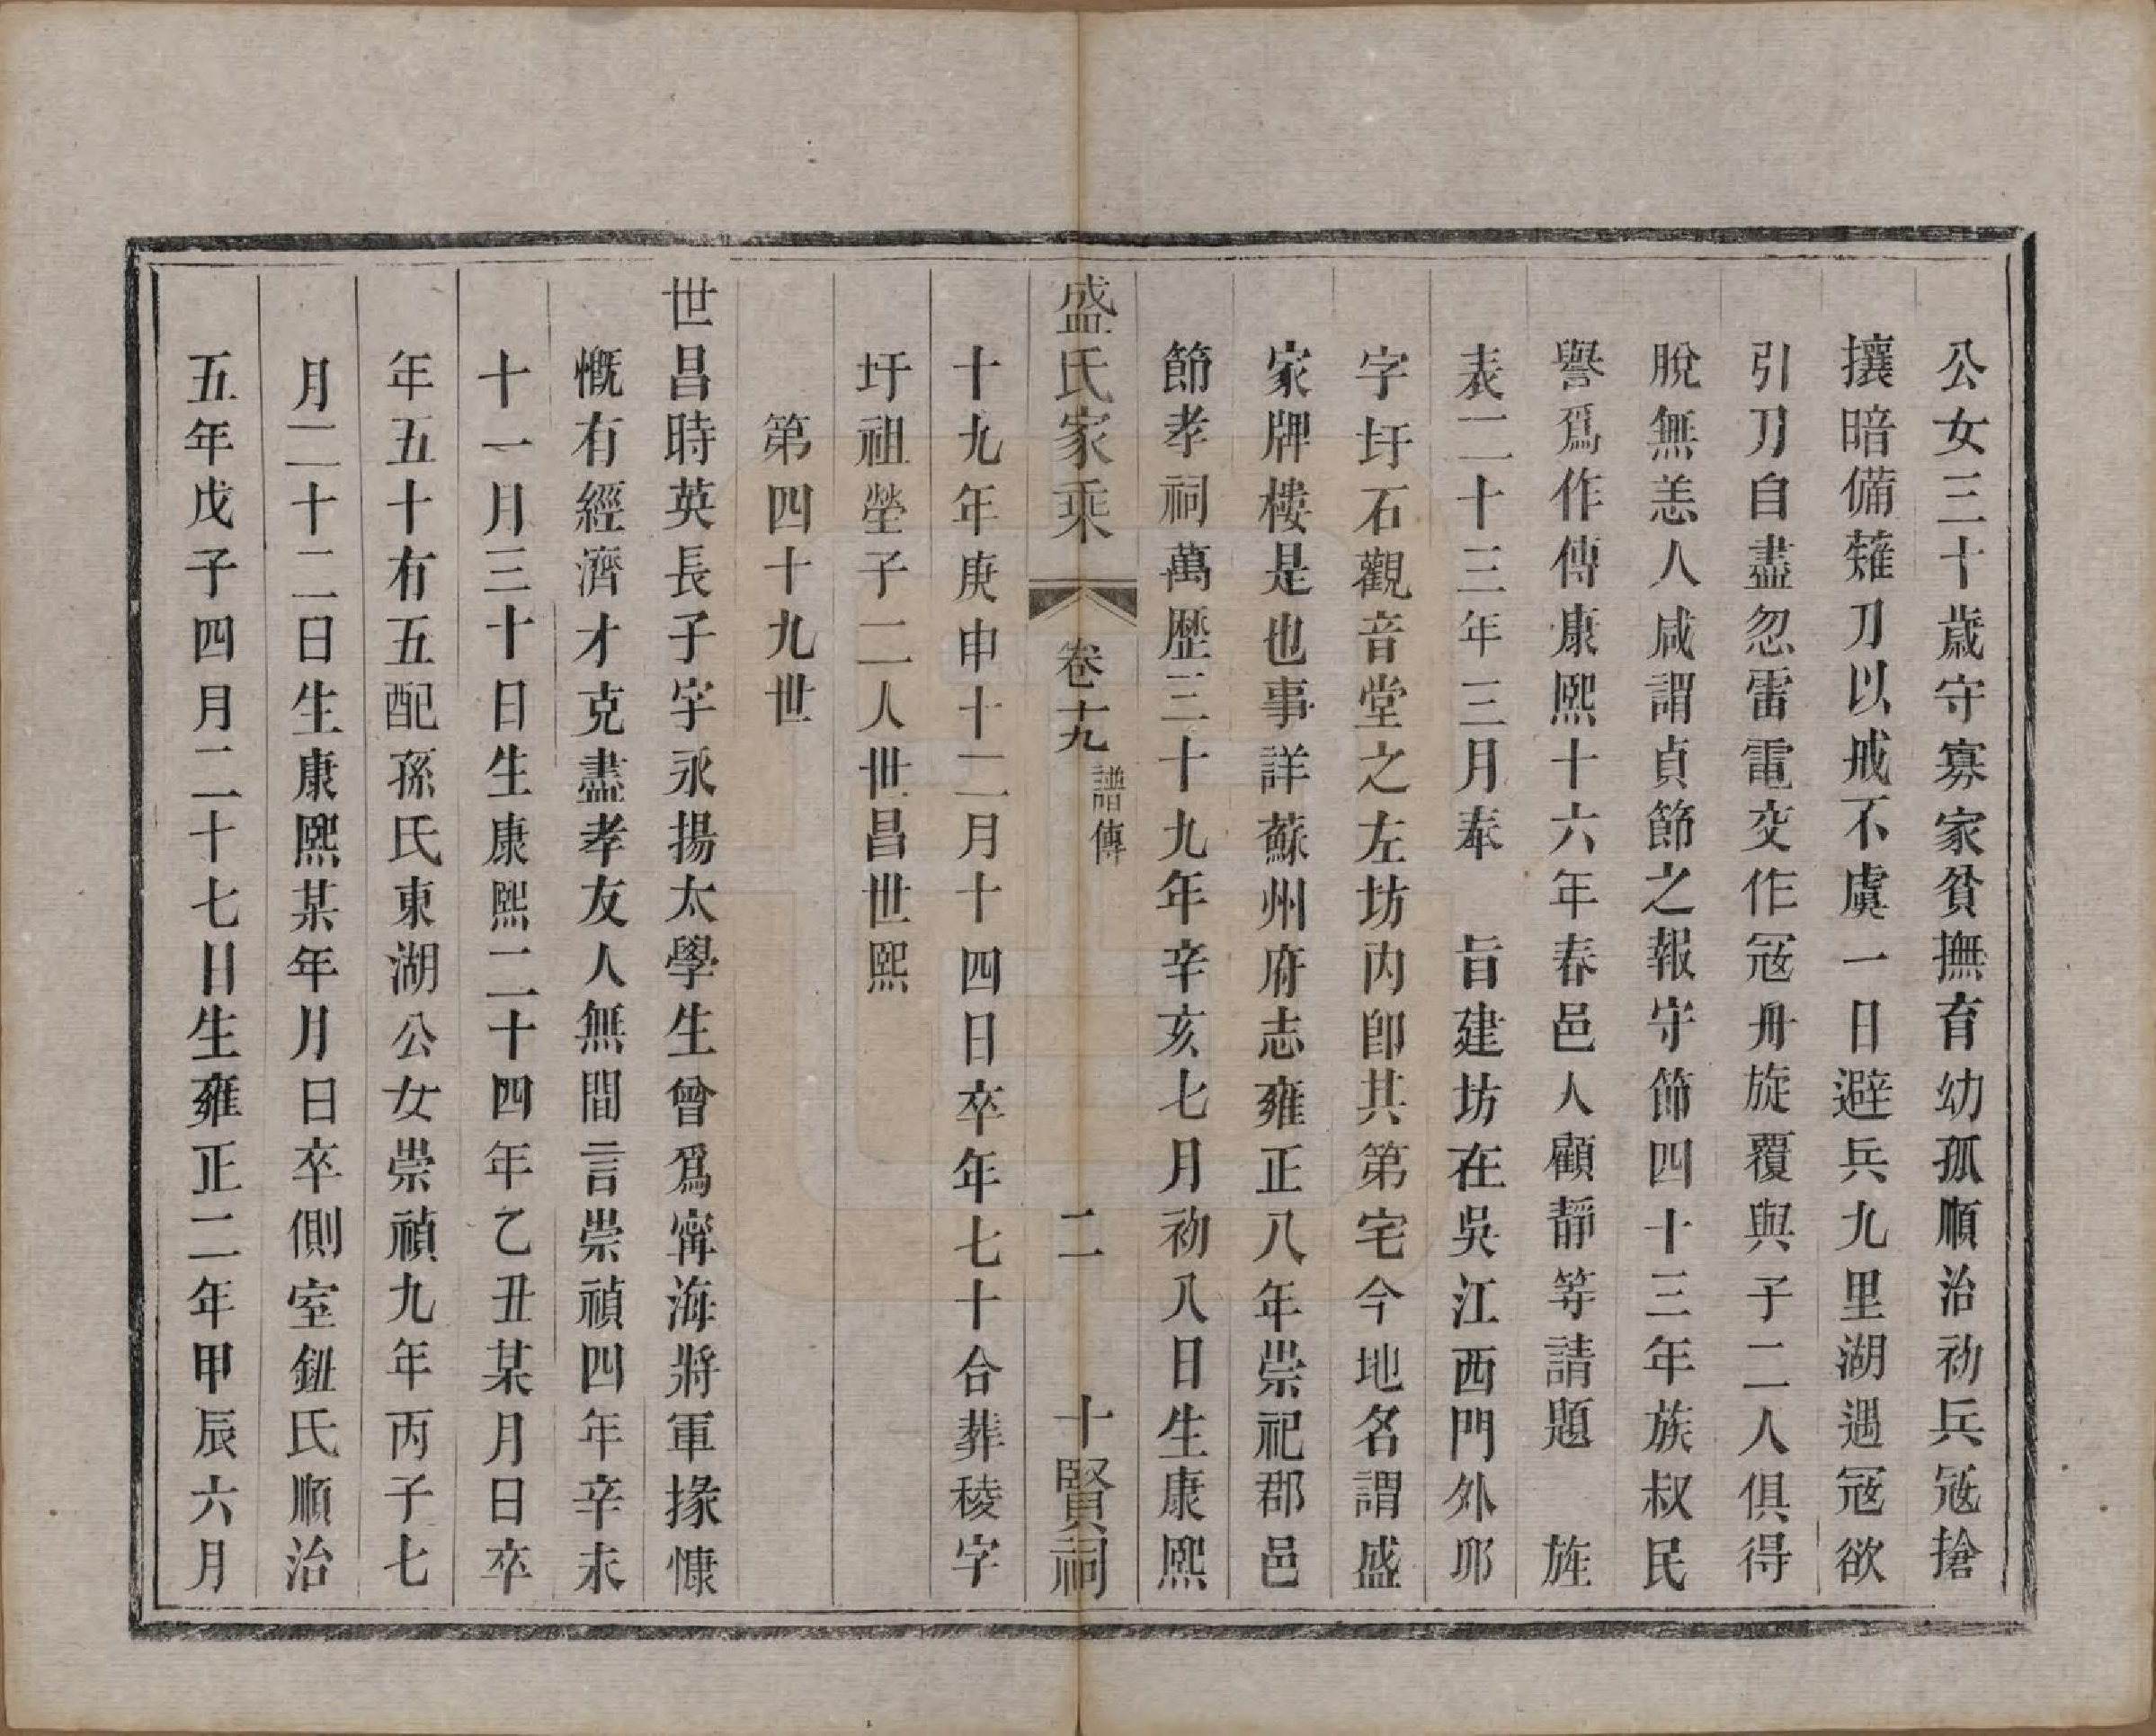 公女三十歲守寡家貧撫育幼孤順治初兵冦搶
攘暗備薙刀以戒不虞一日避兵九里湖遇冦欲
引刀自盡忽雷電交作冦舟旋覆與子二人俱得
脫無恙人咸謂貞節之報守節四十三年族叔民
譽爲作傳康熙十六年春邑人顧靜等請題　旌
表二十三年三月奉　旨建坊在吳江西門外邢
字圩石觀音堂之左坊內卽其第宅今地名謂盛
家牌樓是也事詳蘇州府志雍正八年崇祀郡邑
節孝祠萬歷三十九年辛亥七月初八日生康熙
盛氏家乘　卷十九　譜傳　二　十賢祠
十九年庚申十二月十四日卒年七十合葬稜字
圩祖塋子二人世昌世熙
第四十九世
世昌時英長子字永揚太學生曾爲甯海將軍掾慷
慨有經濟才克盡孝友人無間言崇禎四年辛未
十一月三十日生康熙二十四年乙丑某月日卒
年五十有五配孫氏東湖公女崇禎九年丙子七
月二十二日生康熙某年月日卒側室鈕氏順治
五年戊子四月二十七日生雍正二年甲辰六月